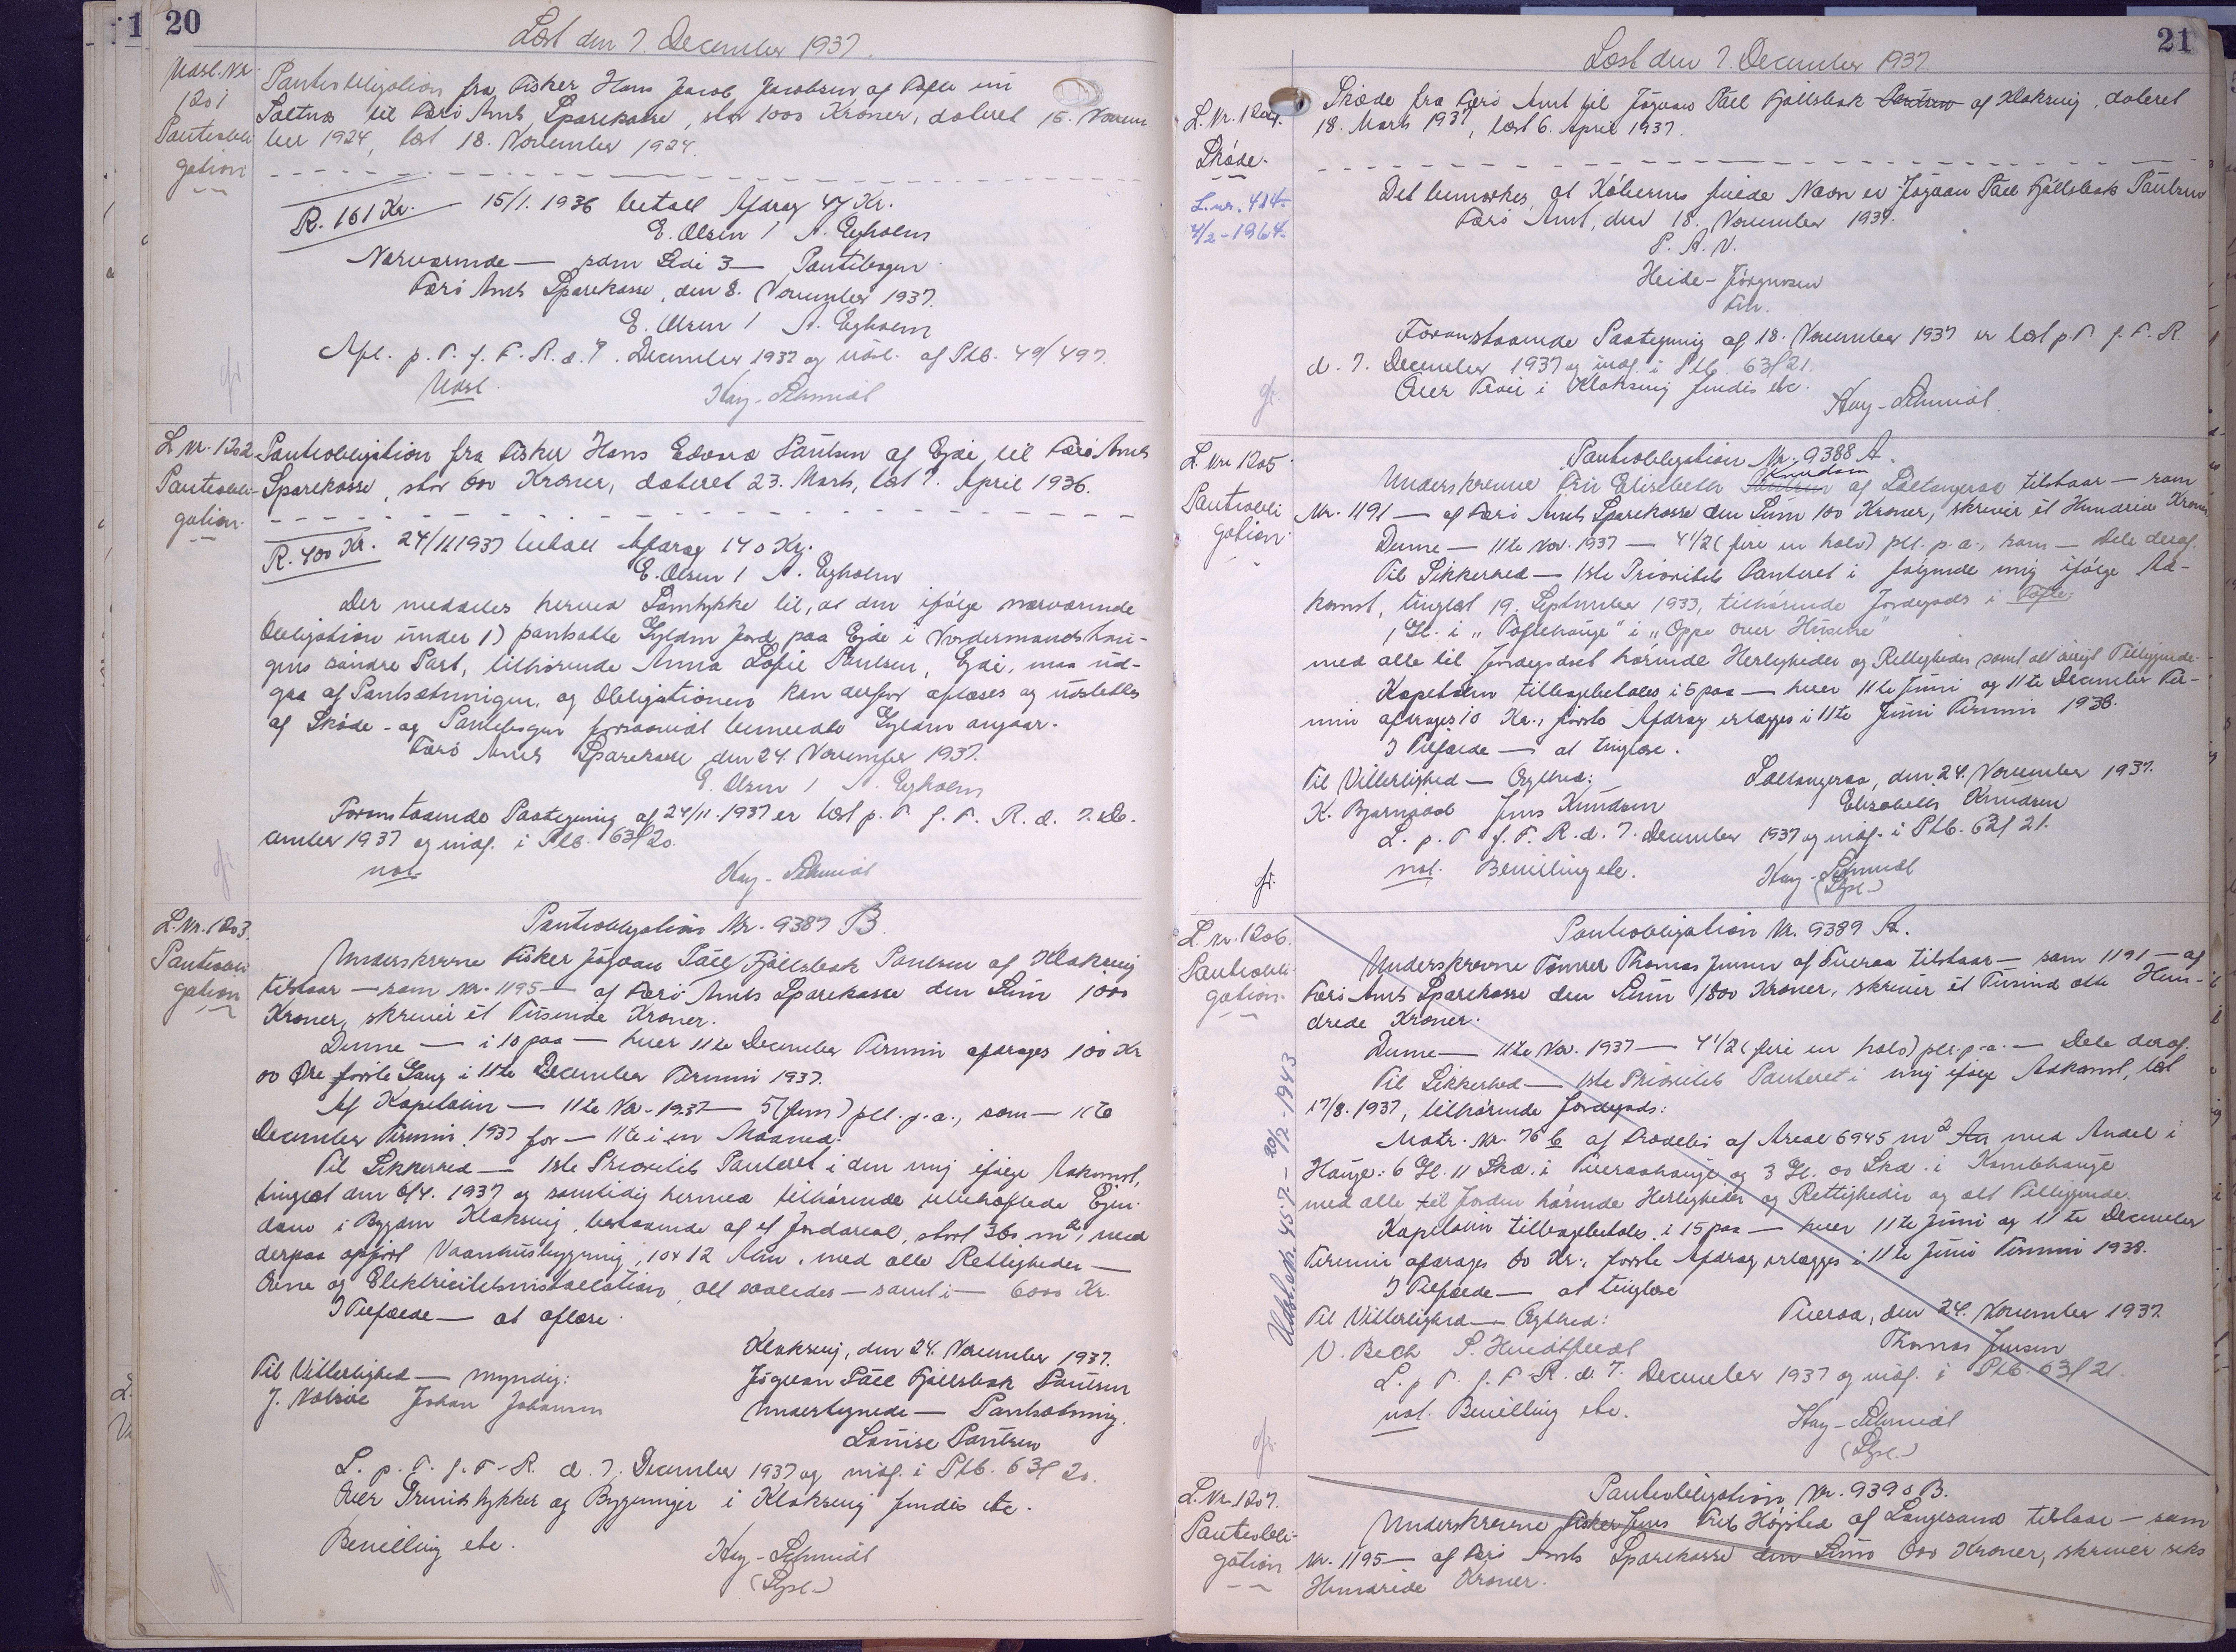 20
Læst den 7. December 1937.
Udsl. Nr.
1201
Panteobli-
gation
Panteobligation fra Fisker Hans Jacob Jacobsen af Tofte nu
Saltnæs til Færø Amts Sparekasse, stor 1000 Kroner, dateret 15. Novem
ber 1924, læst 18. November 1924.
R. 161 Kr. 15/1. 1936 betalt Afdrag 47 Kr.
E. Olsen / A. Egholm
Nærværende — som Sedi 3 — Pantebogen
Færø Amts Sparekasse, den 8. November 1937.
E. Olsen / A. Egholm
Afl. p. T. f. F. R. d. 7. December 1937 og udsl. af Ptb. 49/497.
Udsl. Hey-Schmidt
L. Nr. 1202
Panteobli-
gation
Panteobligation fra Fisker Hans Edvard Paulsen af Ejde, til Færø Amts
Sparekasse, stor 600 Kroner, dateret 23. Marts, læst 7. April 1936.
R. 400 Kr. 24/11 1937 betalt Afdrag 140 Kr.
E. Olsen / A. Egholm
Der meddeles herved Samtykke til, at den ifølge nærværende
Obligation under 1) pantsatte Gylden Jord paa Ejde i Nordermands hau-
gens søndre Part, tilhørende Anna Sofie Paulsen, Ejde, maa ud-
gaa af Pantsætningen, og Obligationen kan derfor aflæses og udslettes
af Skøde- og Pantebogen forsaavidt bemeldte Gylden angaar.
Færø Amts Sparekasse den 24. November 1937.
E. Olsen / A. Egholm
Foranstaaende Paategning af 24/11.1937 er læst p. T. f. F. R. d. 7. De-
cember 1937 og indf. i Ptb. 63f 20.
not. Hey-Schmidt
L. Nr. 1203.
Panteobli
gation
Panteobligation Nr. 9387 B.
Underskrevne Fisker Jógvan Páll Fjallsbak Paulsen af Klaksvig
tilstaar — som Nr. 1195 — af Færø Amts Sparekasse den Sum 1000
Kroner, skriver et Tusinde Kroner.
Denne — i 10 paa — hver 11te December Termin afdrages 100 Kr
00 Øre første Gang i 11te December Termin 1937.
Af Kapitalen — 11te Nov. 1937 — 5 (fem) pct. p. a., som — 11te
December Termin 1937 for — 11te i en Maaned.
Til Sikkerhed — 1ste Prioritets Panteret i den mig ifølge Adkomst,
tinglæst den 6/4. 1937 og samtidig hermed tilhørende ubehæftede Ejen-
dom i Bygden Klaksvig, bestaaende af et Jordareal, stort 360 m², med
derpaa opført Vaaningshusbygning, 10 x 12 Aln, med alle Rettigheder —
Ovne og Elektricitetsinstallation, alt saaledes — samt i — 6000 Kr.
I Tilfælde — at aflæse.
Klaksvig, den 24. November 1937.
Til Vitterlighed — myndig: Jógvan Páll Fjallsbak Paulsen
J. Nolsøe Johan Johansen Undertegnede — Pantsætning.
Louise Paulsen
L. p. T. f. F. R. d. 7. December 1937 og indf. i Ptb. 63f 20.
Over Grundstykker og Bygninger i Klaksvig findes etc.
Bevilling etc. Hey-Schmidt
(Stpl.)
21
Læst den 7. December 1937.
L. Nr. 1204.
Skøde.
L. nr. 414
4/2-1964.
Skøde fra Færø Amt til Jógvan Páll Fjallsbak Paulsen af Klaksvig, dateret
18. Marts 1937, læst 6. April 1937.
Det bemærkes, at Køberens fulde Navn er Jógvan Páll Fjallsbak Paulsen
Færø Amt, den 18. November 1937.
P. A. V.
Heide-Jørgensen
Fm.
Foranstaaende Paategning af 18. November 1937 er læst p. T. f. F. R.
d. 7. December 1937 og indf. i Ptb. 63f 21.
Over Huse i Klaksvig findes etc.
Hey-Schmidt
L. Nr. 1205
Panteobli
gation
Panteobligation Nr. 9388 A.
Knudsen
Underskrevne Fru Elisabeth Paulsen af Saltangeraa tilstaar — som
Nr. 1191 — af Færø Amts Sparekasse den Sum 100 Kroner, skriver et Hundrede Kroner
Denne — 11te Nov. 1937 — 4 1/2 (fire en halv) pct. p. a., som — Dele deraf.
Til Sikkerhed — 1ste Prioritets Panteret i følgende mig ifølge Ad-
komst, tinglæst 19. September 1933, tilhørende Jordegods i Tofte:
1 Gl. i "Toftehauge" i "Oppe over Husene"
med alle til Jordegodset hørende Herligheder og Rettigheder samt alt øvrigt Tilliggende
Kapitalen tilbagebetales i 5 paa — hver 11te Juni og 11te December Ter-
min afdrages 10 Kr., første Afdrag erlægges i 11te Juni Termin 1938.
I Tilfælde — at tinglæse.
Til Vitterlighed — Ægthed: Saltangeraa, den 24. November 1937.
K. Bjarnason Jens Knudsen Elisabeth Knudsen
L. p. T. f. F. R. d. 7. December 1937 og indf. i Ptb. 63f 21.
not. Bevilling etc. Hey-Schmidt
(Stpl.)
L. Nr. 1206.
Panteobli-
gation.
Udsl. Nr. 457 — 20/2-1943
Panteobligation Nr. 9389 A.
Underskrevne Tømrer Thomas Jensen af Tveraa tilstaar — som 1191 — af
Færø Amts Sparekasse den Sum 1800 Kroner, skriver et Tusind otte Hun-
drede Kroner.
Denne — 11te Nov. 1937 — 4 1/2 (fire en halv) pct. p. a. — Dele deraf.
Til Sikkerhed — 1ste Prioritets Panteret i mig ifølge Adkomst, læst
17/8. 1937, tilhørende Jordegods:
Matr. Nr. 76 b af Frodebø af Areal 6945 m² med Andel i
Hauge: 6 Gl. 11 Skd. i Tveraahauge og 3 Gl. 00 Skd. i Kambhauge
med alle til Jorden hørende Herligheder og Rettigheder og alt Tilliggende.
Kapitalen tilbagebetales i 15 paa — hver 11te Juni og 11te December
Termin afdrages 60 Kr., første Afdrag erlægges i 11te Juni Termin 1938.
I Tilfælde — at tinglæse
Til Vitterlighed — Ægthed: Tveraa, den 24. November 1937.
V. Bech Thomas Jensen
L. p. T. f. F. R. d. 7. December 1937 og indf. i Ptb. 63f 21.
not. Bevilling etc. Hey-Schmidt
(Stpl.)
L. Nr. 1207.
Panteobli-
gation
Panteobligation Nr. 9390 B.
Underskrevne Fisker Jens Frits Højsted af Langesand tilstaar — som
Nr. 1195 — af Færø Amts Sparekasse den Sum 600 Kroner, skriver seks
Hundrede Kroner.